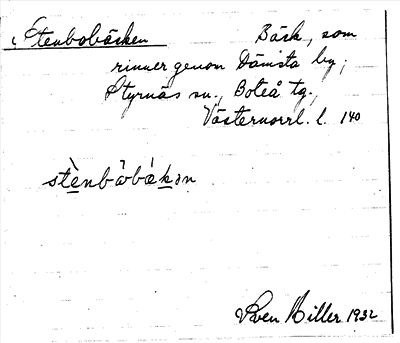 Stenbobäcken Bäck, som
rinner genom Dämsta by;
Styrnäs sn., Boteå tg.,
Västernorrl. l. 140
stènbòbä́kən
Sven Hiller 1932